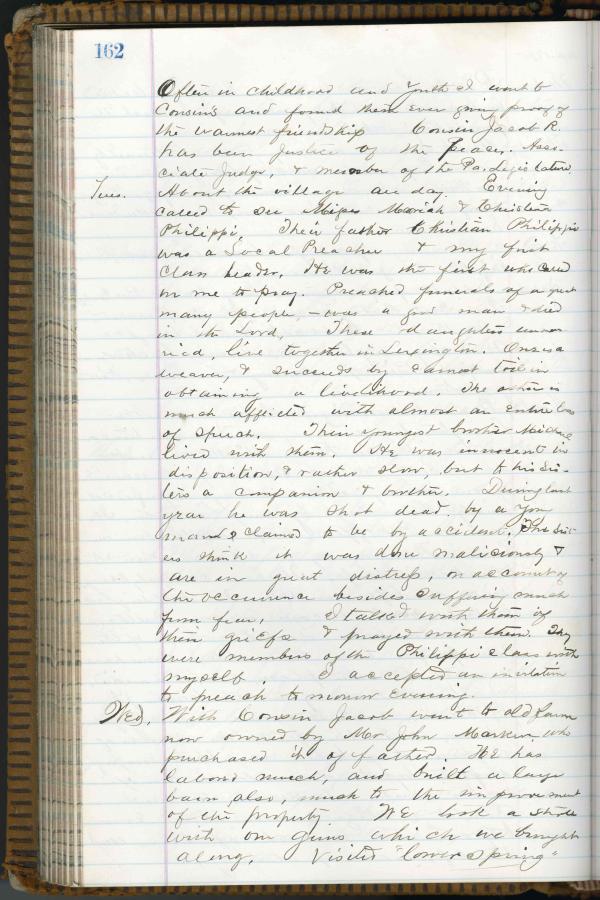 162
Often in childhood and youth I went to
Cousin's and found them ever giving proof of
the warmest friendship Cousin Jacob R.
has been Justice of the peace, Asso-
ciate Judge, & member of the Pa. Legislature.
Tues. About the village all day. Evening
called to see Misses Mariah & Christena
Philippi, Their father Christian Philippi
was a Local Preacher & my first
Class Leader. He was the first who called
on me to pray. Preached funerals of a great
many people, – was a good man & died
in the Lord, These daughters unmar
ried, live together in Lexington. One is a
weaver, & succeeds by earnest toil in
obtaining a livelihood. The other is
much afflicted with almost an entire loss
of speech. Their youngest brother Michael
lived with them. He was innocent in
disposition, & rather slow, but to his sis-
ters a companion & brother. During last
year he was shot dead by a young
man & claimed to be by accident. The sist-
ers think it was done maliciously &
are in great distress, on account of
the occurrence besides suffering much
from fear, I talked with them of
their griefs & prayed with them. They
were members of the Philippi class with
myself. I accepted an invitation
to preach to morrow evening.
Wed. With Cousin Jacob went to old farm
now owned by Mr John who
purchased it of father. He has
labored much, and built a large
barn also, much to the improvement
of the property. We took a stroll
with our guns which we brought
along, Visited "lower spring"